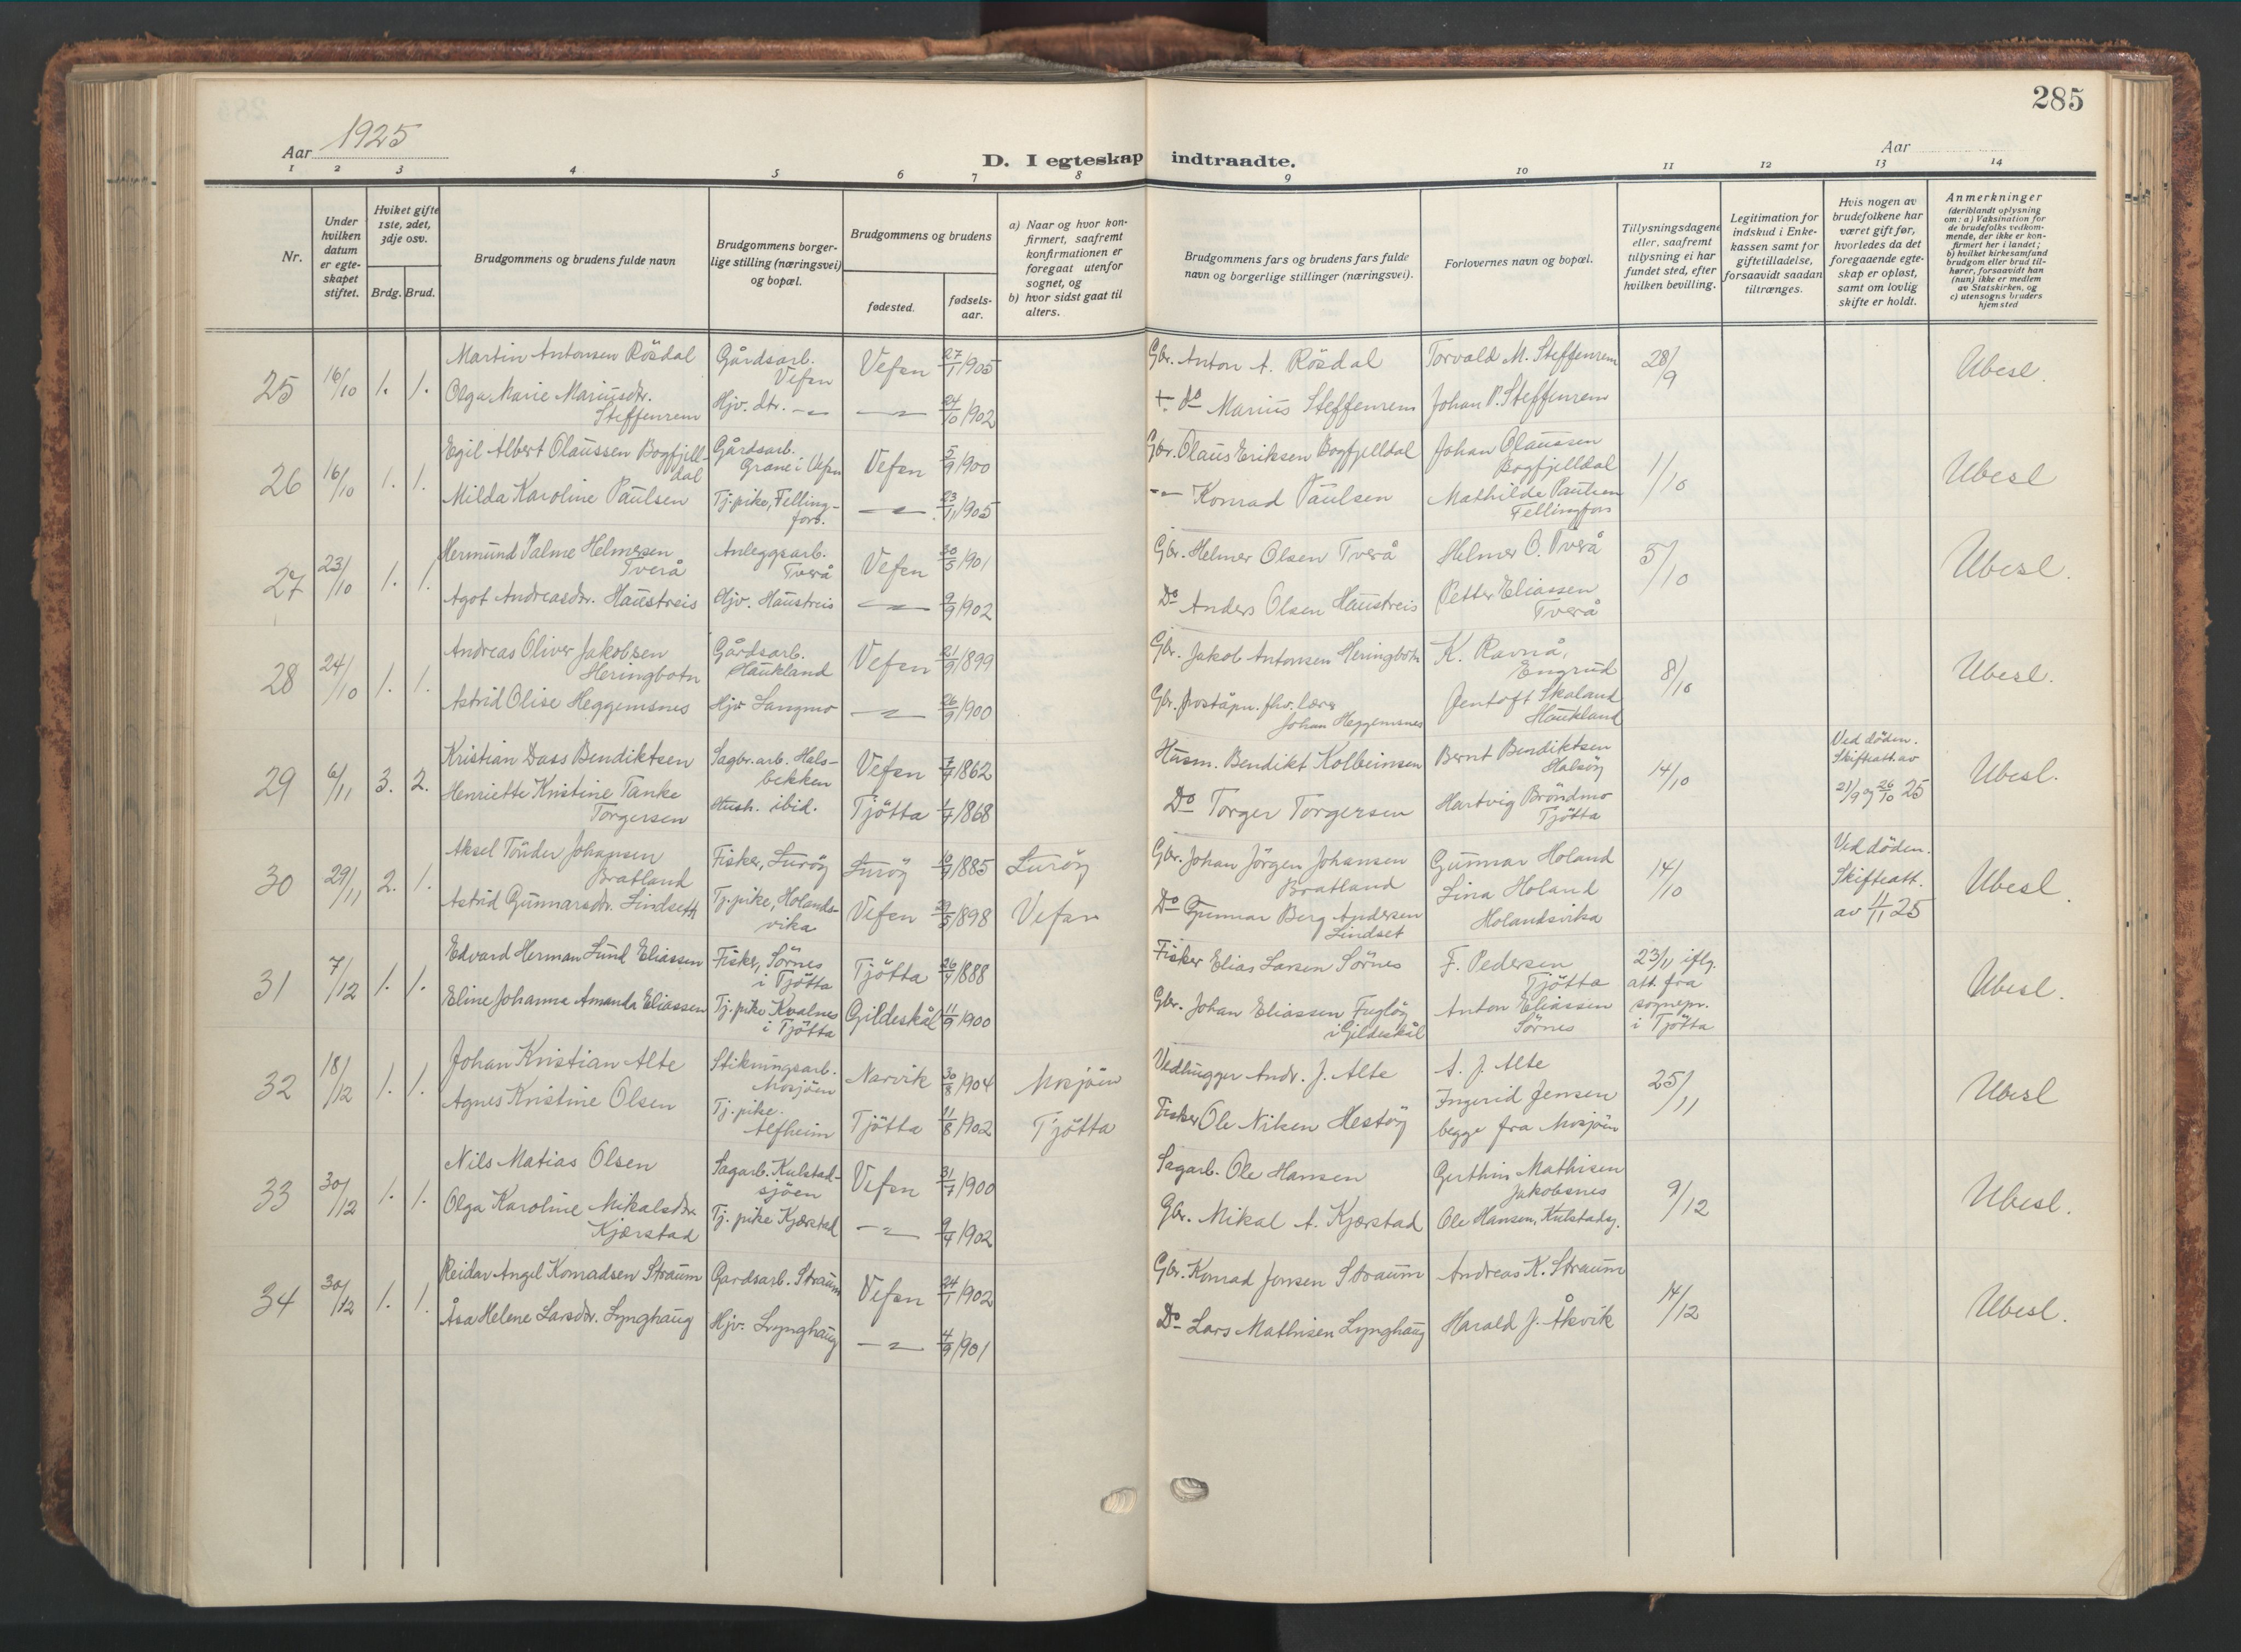 285
Aar 1925
Aar
D. I egteskap indtraadte.
1 2 3 4 5 6 7 8 9 10 11 12 13 14
Nr.
Under hvilken datum er egte- skapet stiftet.
Hviket gifte 1ste, 2det, 3dje osv.
Brdg. Brud.
Brudgommens og brudens fulde navn
Brudgommens borger- lige stilling (næringsvei) og bopæl.
Brudgommens og brudens
fødested.
fødsels- aar.
a) Naar og hvor kon- firmert, saafremt konfirmationen er foregaat utenfor sognet, og
b) hvor sidst gaat til alters.
Brudgommens fars og brudens fars fulde navn og borgerlige stillinger (næringsvei).
Forlovernes navn og bopæl.
Tillysningsdagene eller, saafremt tillysning ei har fundet sted, efter hvilken bevilling.
Legitimation for indskud i Enke- kassen samt for giftetilladelse, forsaavidt saadan tiltrænges.
Hvis nogen av brudefolkene har været gift før, hvorledes da det foregaaende egte- skap er opløst, samt om lovlig skifte er holdt.
Anmerkninger (deriblandt oplysning om: a) Vaksination for de brudefolks vedkom- mende, der ikke er kon- firmert her i landet; b) hvilket kirkesamfund brudgom eller brud til- hører, forsaavidt han (hun) ikke er medlem av Statskirken, og c) utensogns bruders hjemsted
25 16/10 1. 1. Martin Antonsen Rösdal Gårdsarb. Vefsn Vefsn 27/1 1905 Gbr. Anton A. Rösdal Torvald M. Steffenrem 28/9 Ubesl.
Olga Marie Mariusdtr. Steffenrem Hjv. dtr. -"- -"- 24/10 1902 +. do Marius Steffenrem Johan P. Steffenrem
26 16/10 1. 1. Egil Albert Olaussen Bogfjell- dal Gårdsarb. Grane i Vefsn Vefsn 5/9 1900 Gbr. Olaus Eriksen Bogfjelldal Johan Olaussen Bogfjelldal 1/10 Ubesl
Milda Karoline Paulsen Tj. pike, Felling- fors. -"- 23/11 1905 -"- Konrad Paulsen Mathilde Paulsen Fellingfors
27 23/10 1. 1. Hermund Palme Helmersen Tverå Anleggsarb. Tverå Vefsn 30/5 1901 Gbr. Helmer Olsen Tverå Helmer O. Tverå 5/10 Ubesl.
Agot Andreasdtr. Haustreis Hjv. Haustreis -"- 9/9 1902 Do Anders Olsen Haustreis Petter Eliassen Tverå
28 24/10 1. 1. Andreas Oliver Jakobsen Heringbotn Gårdsarb. Haukland Vefsn 21/9 1899 Gbr. Jakob Antonsen Heringbotn K. Ravnå, Engrud 8/10 Ubesl.
Astrid Olise Heggemsnes Hjv Langmo -"- 26/9 1900 Gbr. poståpn. fhv. lærer Johan Heggemsnes Jentoft Skoland Haukland
29 6/11 3. 2. Kristian Dass Bendiktsen Sagbr. arb. Hals- bekken Vefsn 7/7 1862 Husm. Bendikt Kolbeinsen Bernt Bendiktsen Halsöy 14/10 Ved döden. Skifteatt. av 21/9 og 26/10 25 Ubesl.
Henriette Kristine Tanke Torgersen Hush. ibid. Tjötta 1/7 1868 Do Torger Torgersen Hartvig Bröndmo Tjötta
30 29/11 2. 1. Aksel Tönder Johansen Bratland Fisker, Luröy Luröy 16/9 1885 Luröy Gbr. Johan Jörgen Johansen Bratland Gunnar Holand 14/10 Ved döden. Skifteatt. av 11/11 25 Ubesl.
Astrid Gunnarsdtr. Lindseth Tj. pike, Holands- vika Vefsn 29/5 1898 Vefsn Do Gunnar Berg Andersen Lindset Lina Holand Holandsvika
31 7/12 1. 1. Edvard Herman Lund Eliassen Fisker, Sörnes i Tjötta Tjötta 26/4 1888 Fisker Elias Larsen Sörnes F. Pedersen Tjötta 23/11 iflg. att. fra sognepr. i Tjötta Ubesl.
Eline Johanna Amanda Eliassen Tj. pike Kvalnes i Tjötta Gildeskål 11/9 1900 Gbr. Johan Eliassen Fuglöy i Gildeskål Anton Eliassen Sörnes
32 18/12 1. 1. Johan Kristian Alte Stikningsarb. Mosjöen Narvik 30/8 1904 Mosjöen Vedhugger Andr. J. Alte A. J. Alte 25/11 Ubesl
Agnes Kristine Olsen Tj. pike. Alfheim Tjötta 11/8 1902 Tjötta Fisker Ole Niken Hestöy Ingerid Jensen begge fra Mosjöen
33 30/12 1. 1. Nils Matias Olsen Sagarb. Kulstad- sjöen Vefsn 31/7 1900 Sagarb. Ole Hansen Gerthin Mathisen Jakobsnes 9/12 Ubesl.
Olga Karoline Mikalsdtr. Kjærstad Tj. pike Kjærstad -"- 9/4 1902 Gbr. Mikal A. Kjærstad Ole Hansen, Kulstadsj.
34 30/12 1. 1. Reidar Angel Konradsen Straum Gardsarb. Straum Vefsn 24/1 1902 Gbr. Konrad Jensen Straum Andreas K. Straum 14/12 Ubesl.
Åsa Helene Larsdtr. Lynghaug Hjv. Lynghaug -"- 4/9 1901 Do Lars Mathisen Lynghaug Harald J. Åkvik